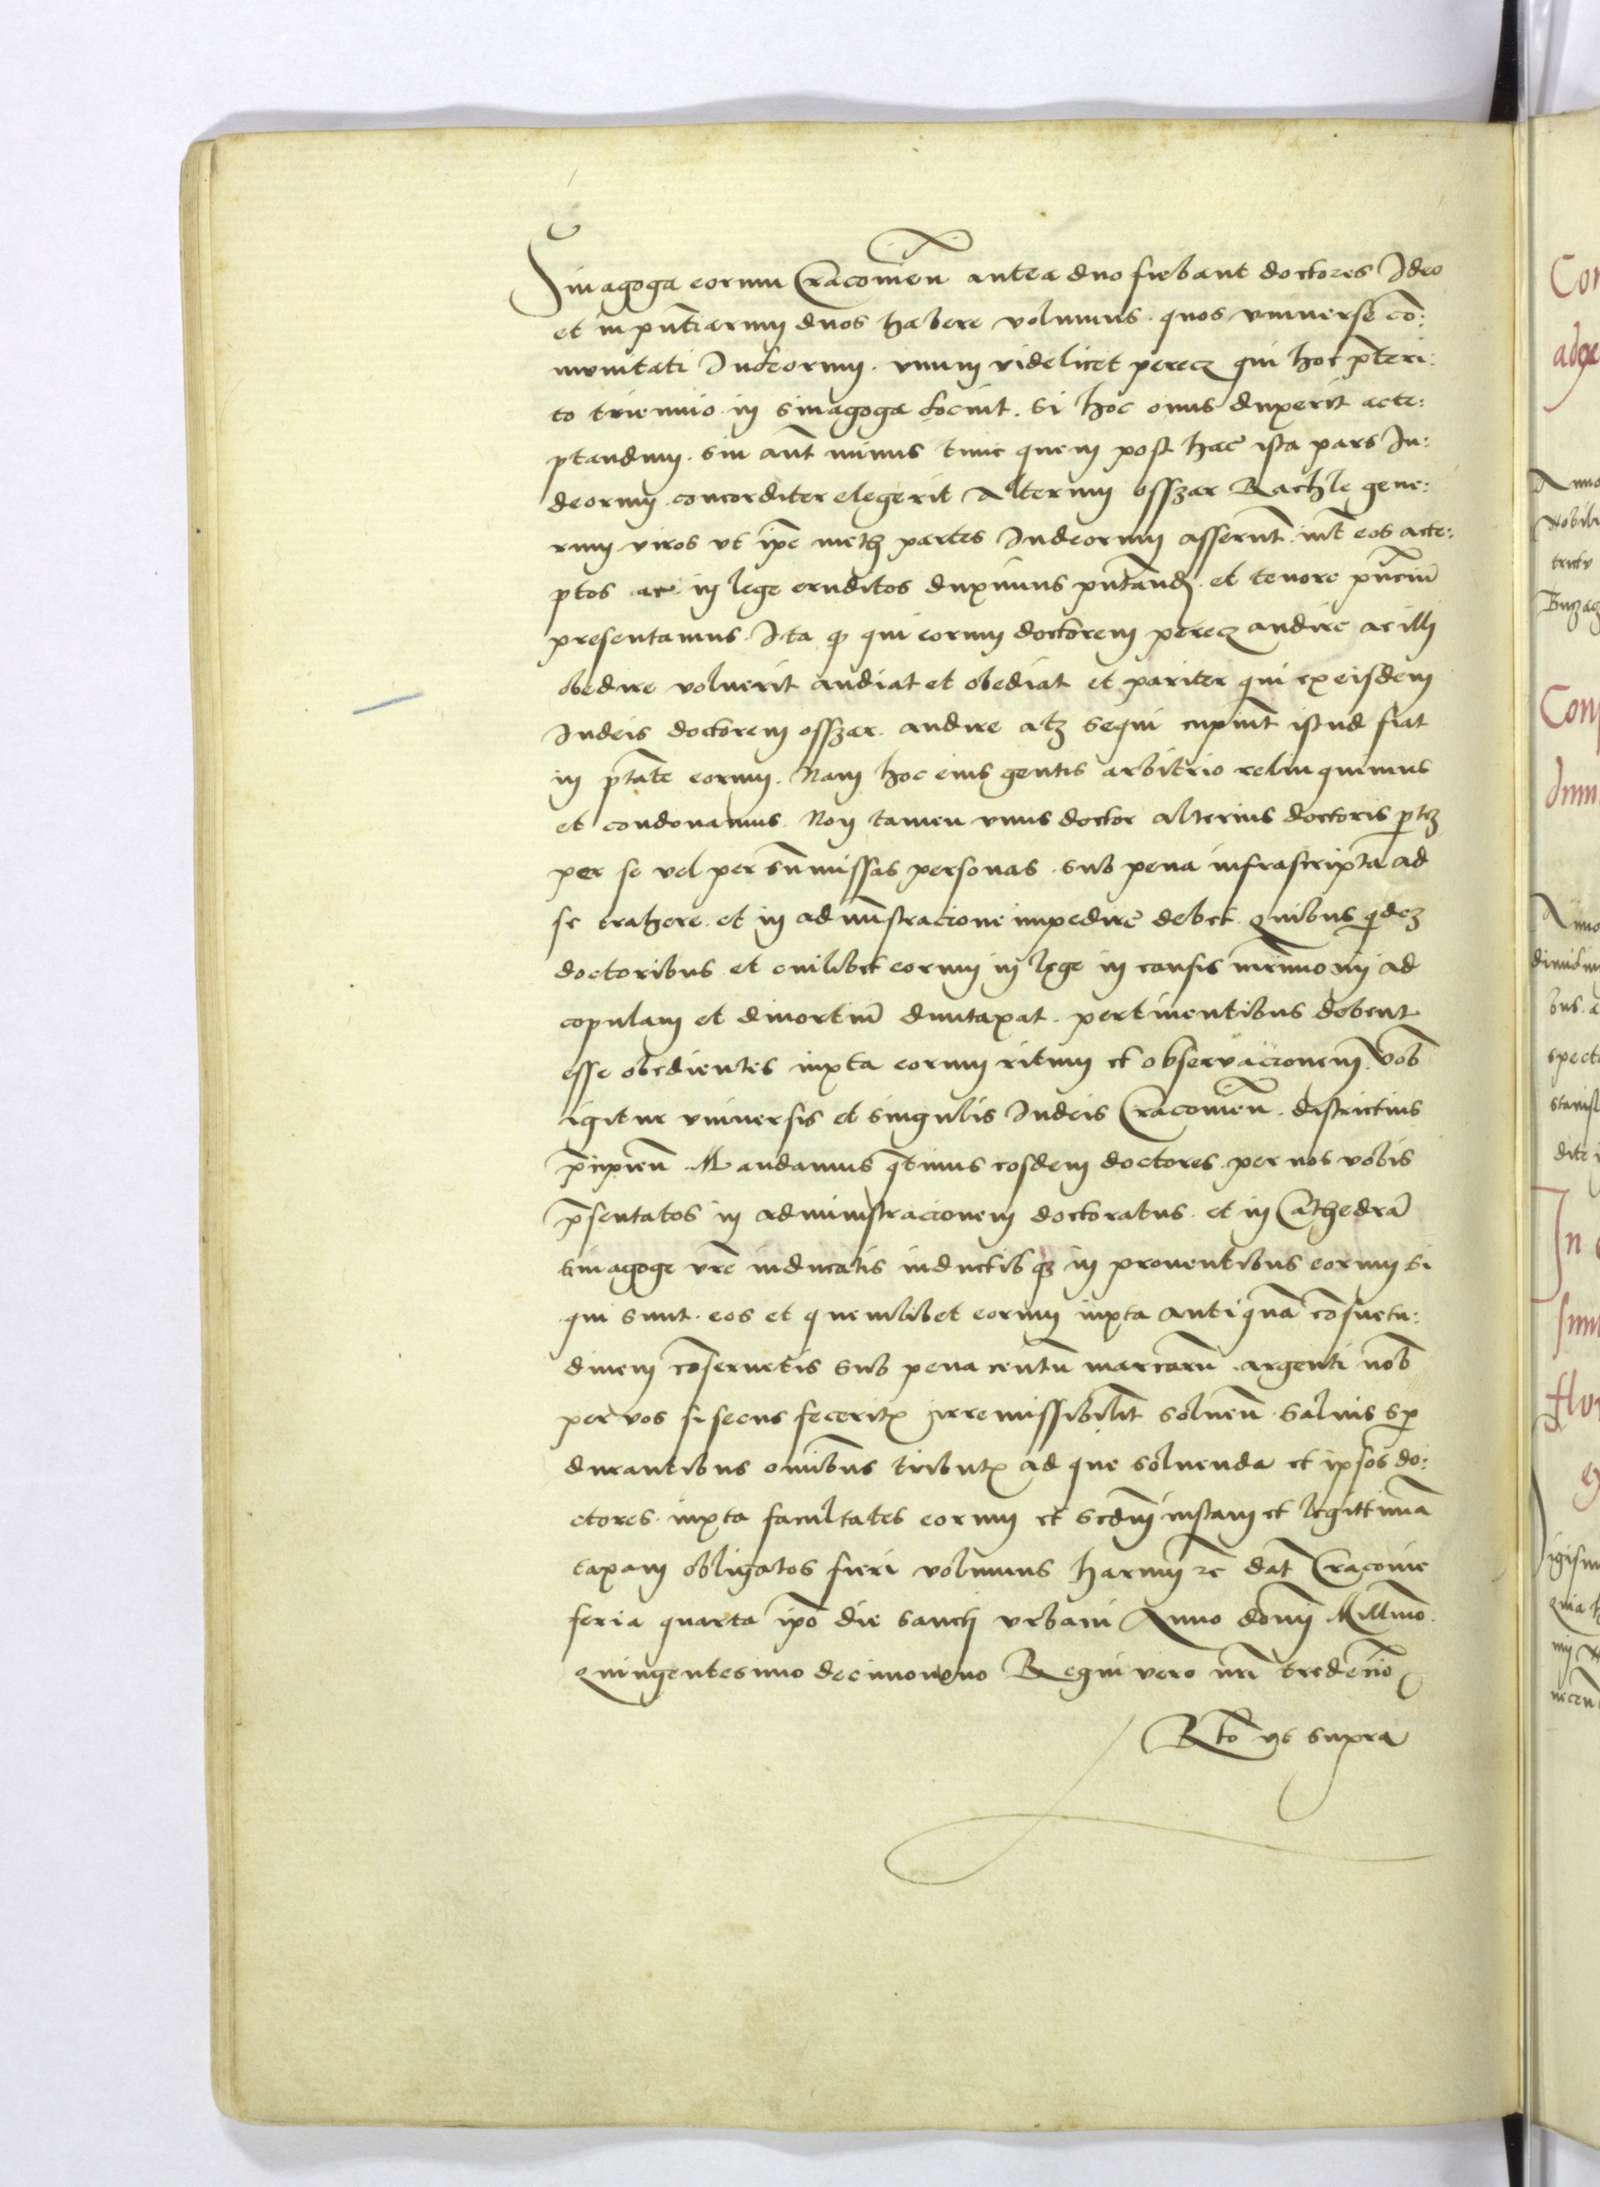 Sinagoga eorum Cracovien̄ antea duo fiebant doctores Ideo
et in pn̄tiarum duos habere volumus. quos vniuerse co͞:
munitati Iudeorum. vnum videlicet perecz qui hoc p̄teri:
to triennio in sinagoga docuit. si hoc onus duxerit acce:
ptandum. sin aūt minus tunc quem post hac̄ ista pars Iu:
deorum concorditer elegerit Alterum osszer Rachle gene:
rum viros vt ip̄e meth partes Iudeorum asserunt̄. int̄ eos acce:
ptos ac in lege eruditos duximus pn̄tand. et tenore pn̄ciū
presentamus. Ita q̵ qui eorum doctorem perecz audire ac illi
obedire voluerit audiat et obediat et pariter qui ex eisdem
Iudeis doctorem osszer. audire atq̄ sequi cupiūt istud fiat
in p̄tate eorum. Nam hoc eius gentis arbitrio relinquimus
et condonamus. Non tamen vnus doctor alterius doctoris p̄tem
per se vel per sūmissas personas. sub pena infrascripta ad
se trahere. et in adm̄istracione impedire debet. Quibus q̄dez
doctoribus et cuilibet eorum in lege in causis mr̄imonij ad
copulam et diuortiū duntaxat. pertinentibus debent
esse obedientes iuxta eorum ritum et obseruacionem. vob̄
igitur vniuersis et singulis Iudeis Cracovien̄. districtius
p̄cipien̄ Mandamus q̄tinus eosdem doctores. per nos vobis
p̄sentatos in administracionem doctoratus. et in Cathedrā
sinagoge vr̄e inducatis inductisq̄ in prouentibus eorum si
qui sunt. eos et quemlibet eorum iuxta antiquā co͞suetu:
dinem co͞seruetis sub pena centū marcarū argenti nob̄
per vos si secus feceritꝭ irremissibilit̄ soluen̄. Saluis sp̄
durantibus omībus tributꝭ ad que soluenda et ipsos do:
ctores. iuxta facultates eorum et scdm̄ iustam et legittimā
taxam obligatos fieri volumus harum ꝛc̄ dat̄ Cracovie
feria quarta ip̄o die sancti Vrbani Anno domi͞ Millm̄o
Quingentesimo decimonono Regni vero nr̄i tredecīo
R̄tō vts supra